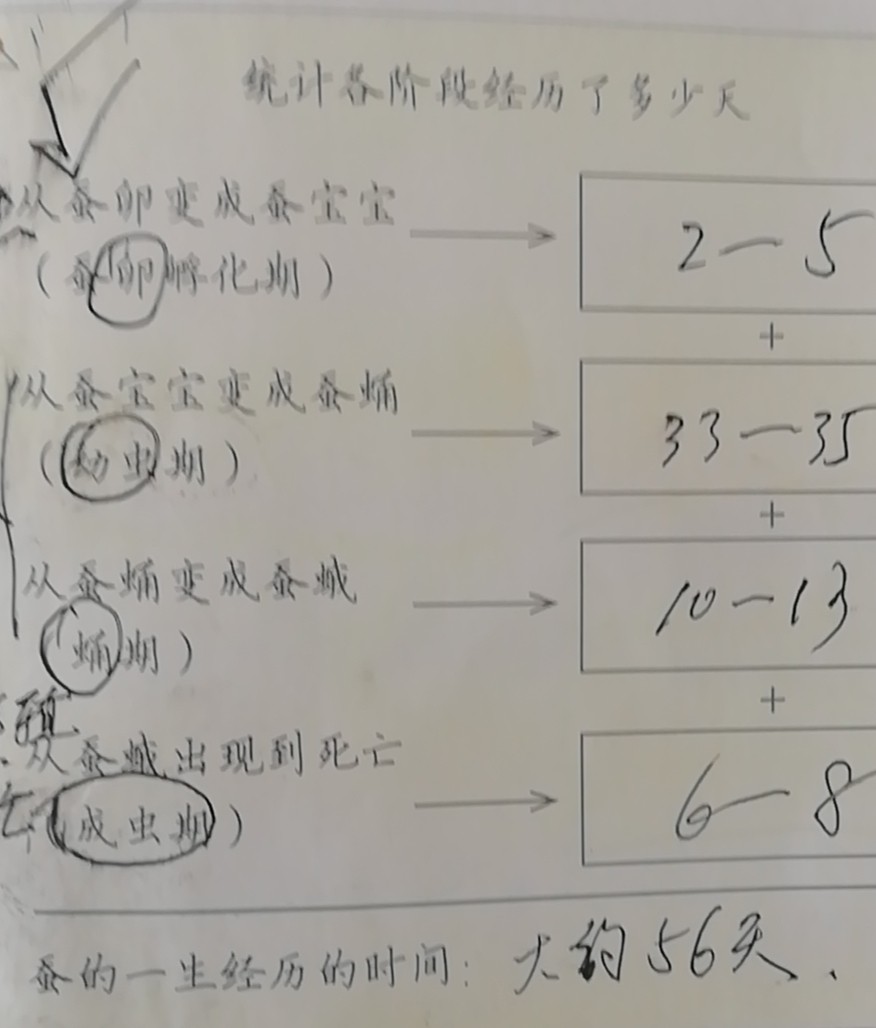 统计各阶段经历了多少天
从蚕卵变成蚕宝宝
2—5
(蚕卵孵化期)
+
从蚕宝宝变成蚕蛹
33—35
(幼虫期)
+
从蚕蛹变成蚕蛾
10—13
(蛹期)
+
从蚕蛾出现到死亡
6—8
(成虫期)
蚕的一生经历的时间: 大约56天.